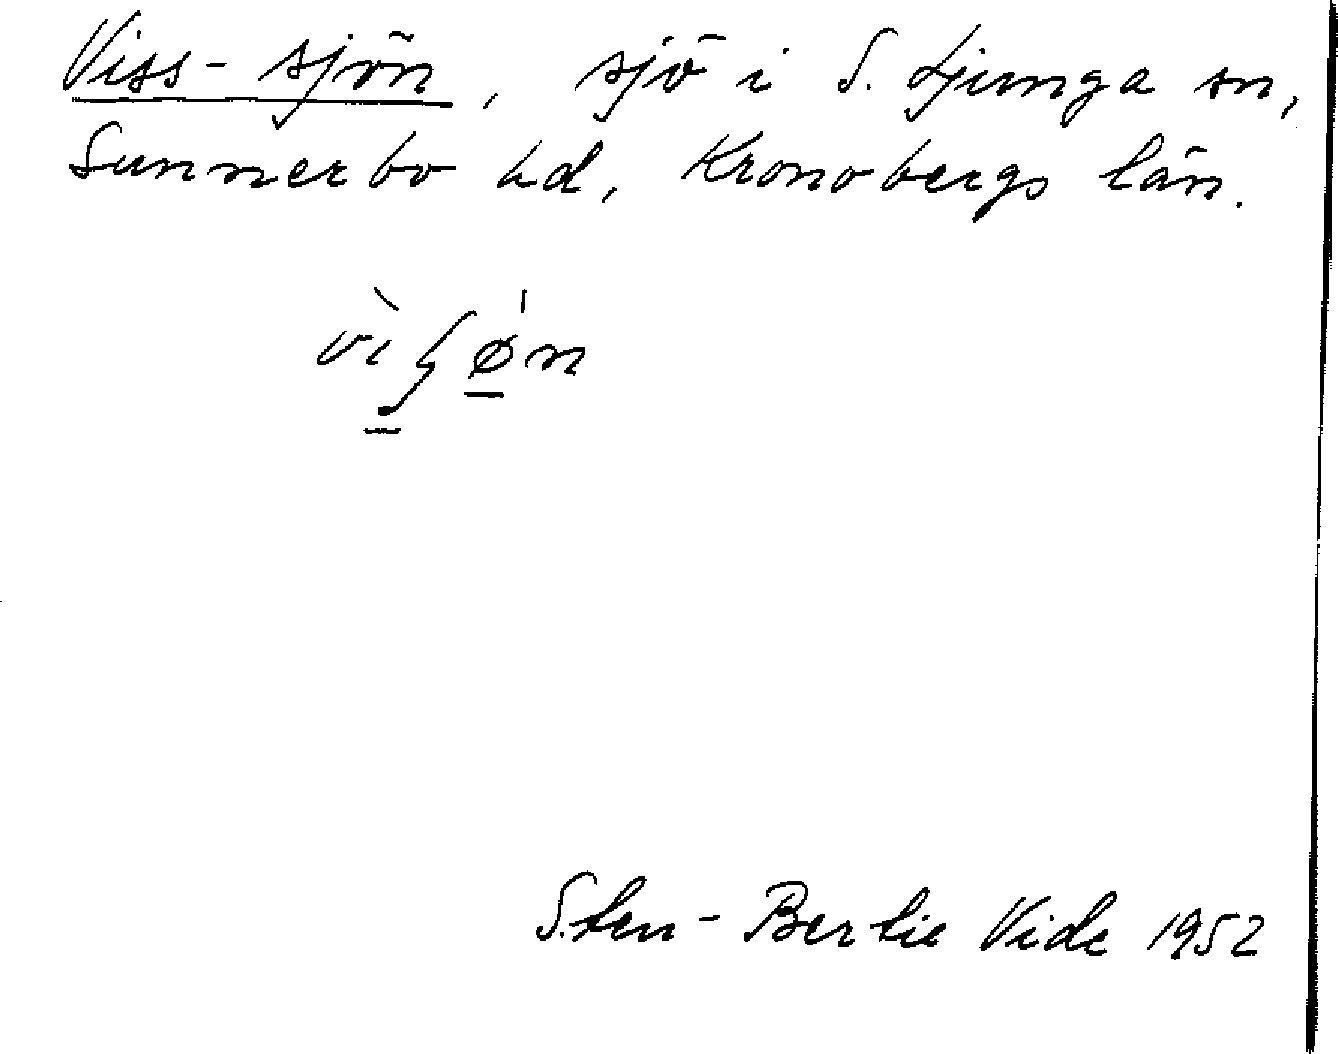 Viss-sjön, sjö i S. Ljunga sn,
Sunnerbo hd, Kronobergs län.
Sten-Bertie Vide 1952